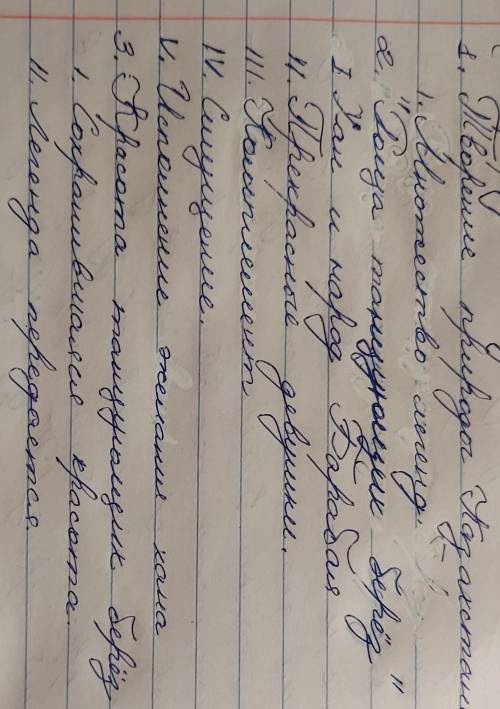 1. Творение природы Казахстана
I. Множество легенд.
2. "Роща танцующих берёз"
I Хан и народ Барабая
II. Прекрасные девушки.
III. Комплимент
IV. Смущение.
V. Исполнение желания хана
3. Красота танцующих берёз
I. Сохранившаяся красота.
II. Легенда передаётся.